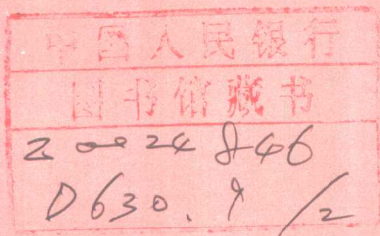 中国人民银行
图书馆藏书
20024846
D630.9/2